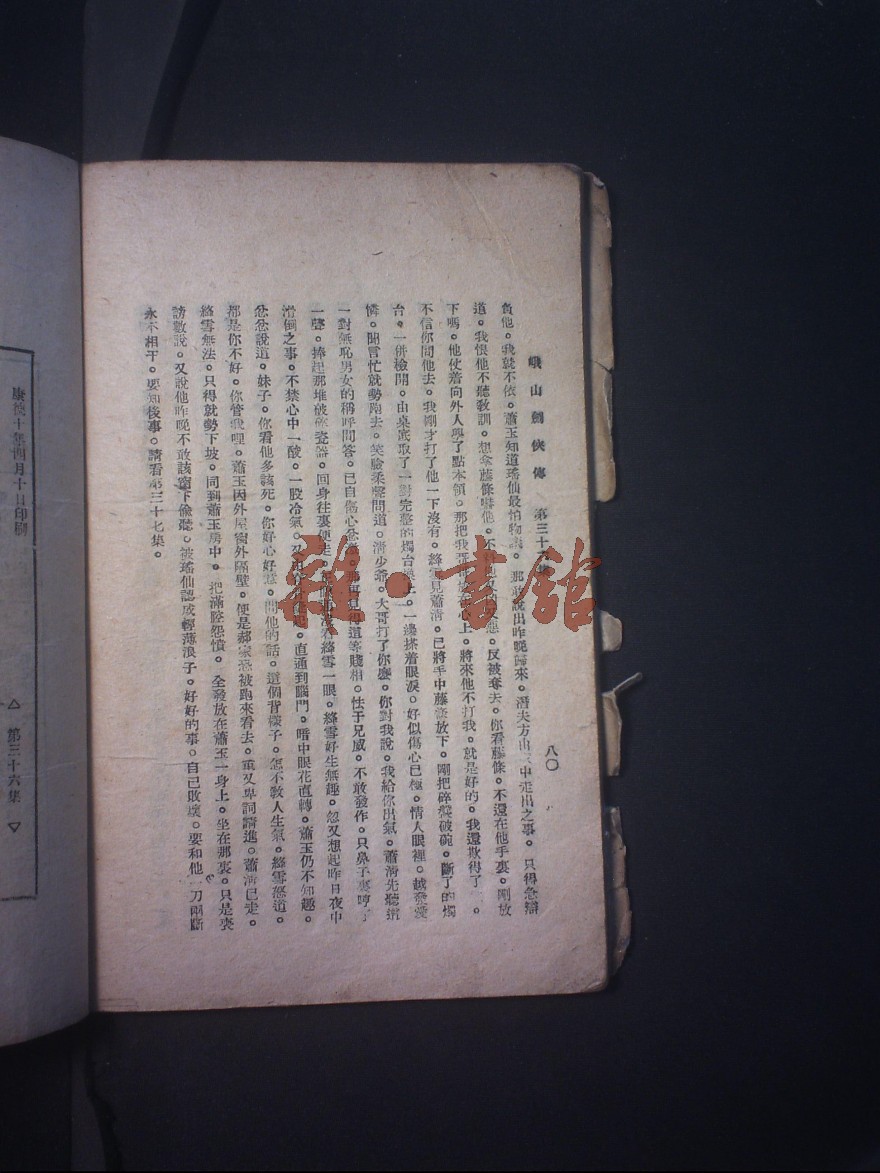 峨山劍俠傳 第三十六集 八〇
負他。我就不依。蕭玉知道瑤仙最怕物議。那敢說出昨晚歸來。潛夫方由 中走出之事。只得急辯
道。我恨他不聽敎訓。想拿藤條嚇他。不 反被奪去。你看藤條。不還在他手裏。剛放
下嗎。他仗着向外人學了點本領。那把我 放在心上。將來他不打我。就是好的。我還欺得了 。
不信你問他去。我剛才打了他一下沒有。絳雪見蕭淸。已將手中藤條放下。剛把碎盤破碗。斷了的燭
台。一併檢開。由桌底取了一對完整的燭台 上。一邊揉着眼淚。好似傷心已極。情人眼裡。越發愛
憐。聞言忙就勢跑去。笑臉柔聲問道。淸少爺。大哥打了你麽。你對我說。我給你出氣。蕭淸先聽這
一對無恥男女的稱呼問答。已自傷心忿 。那再見得這等賤相。怯于兄威。不敢發作。只鼻子裏哼了
一聲。捧起那堆破碎瓷器。回身往裏便走。 沒看絳雪一眼。絳雪好生無趣。忽又想起昨日夜中
滑倒之事。不禁心中一酸。一股冷氣。 直通到腦門。暗中眼花直轉。蕭玉仍不知趣。
忿忿說道。妹子。你看他多該死。你好心好意。問他的話。這個背樣子。怎不敎人生氣。絳雪怒道。
都是你不好。你管我哩。蕭玉因外屋窗外隔壁。便是郝家恐被跑來看去。重又卑詞請進。蕭淸已走。
絳雪無法。只得就勢下坡。同到蕭玉房中。把滿腔怨憤。全發放在蕭玉一身上。坐在那裏。只是喪
謗數說。又說他昨晚不敢該窗下偷聽。被瑤仙認成輕薄浪子。好好的事。自己敗壞。要和他一刀兩斷
永不相干。要知後事。請看第三十七集。
康德十年四月十日印刷
△ 第三十六集 ▽
雜·書館